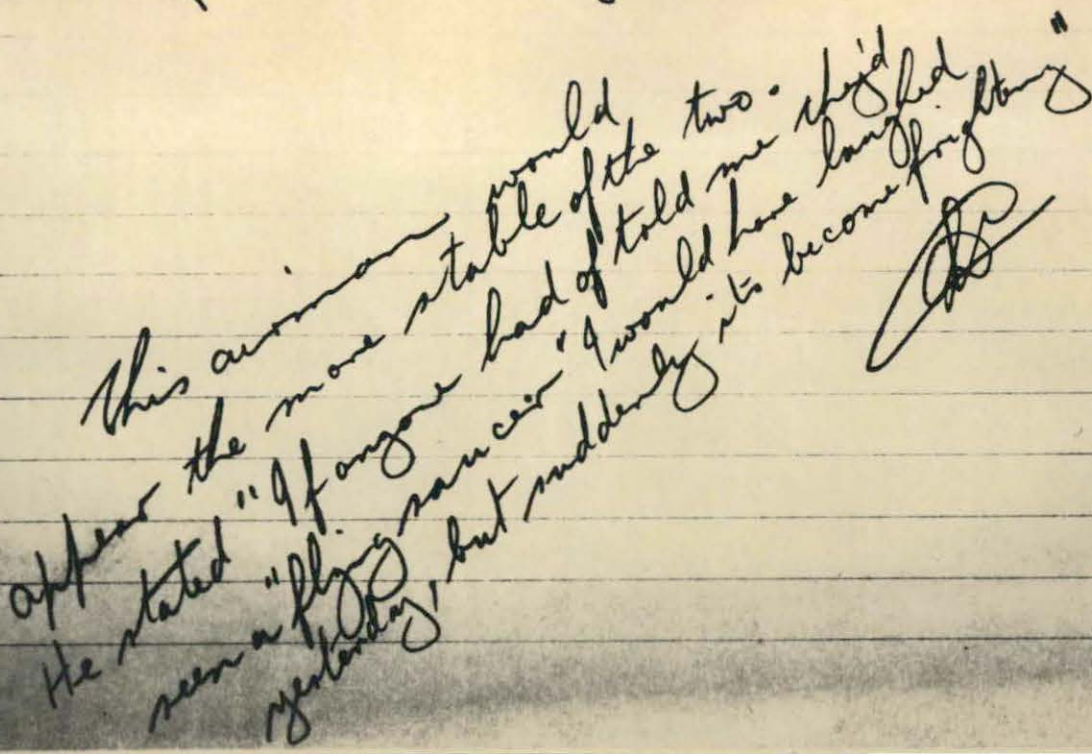 This airman would
appear the more stable of the two.
He stated "If anyone had of told me they'd
seen a "flying saucer" I would have laughed
yesterday, but suddenly its become frightening"